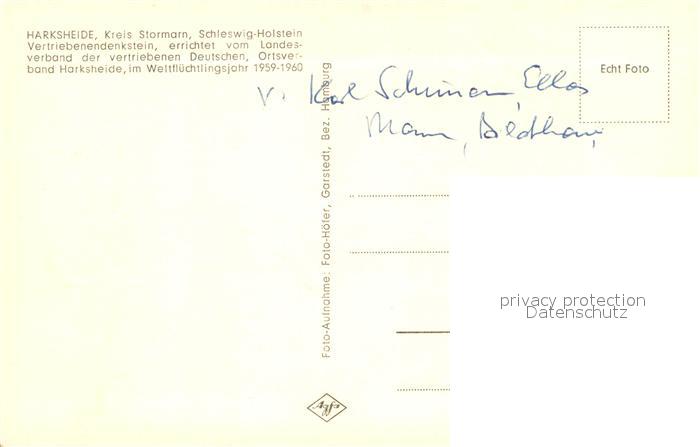 HARKSHEIDE, Kreis Stormarn, Schleswig-Holstein
Vertriebenendenkstein, errichtet vom Landes-
verband der vertriebenen Deutschen, Ortsver-
band Harksheide, im Weltflüchtlingsjahr 1959-1960
Echt Foto
v. Karl Schumann,
Mann,
Foto-Aufnahme: Foto-Höfer, Garstedt, Bez. Hamburg
privacy protection
Datenschutz
Agfa